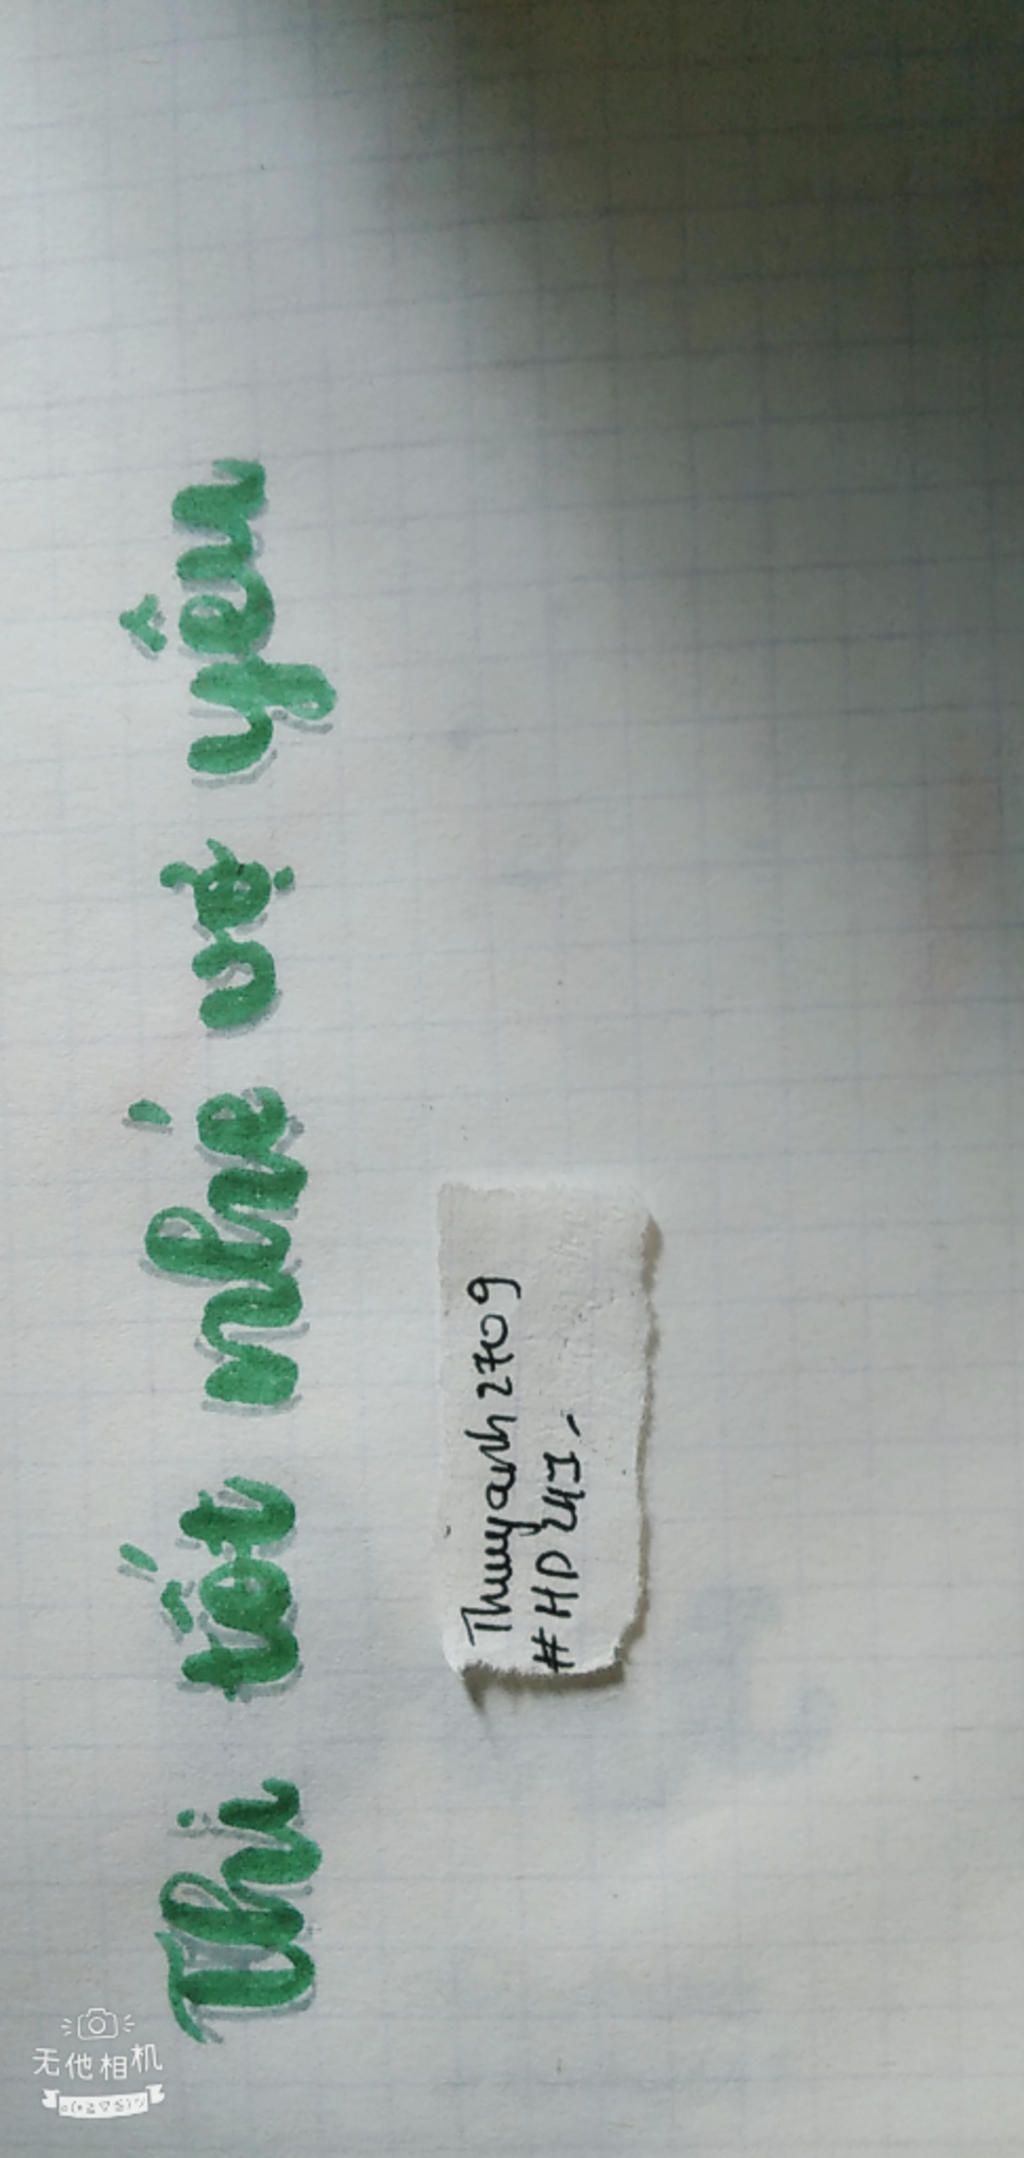 Thi tốt nhé vợ yêu
Thuyanh2709
#HD24I-
无他相机